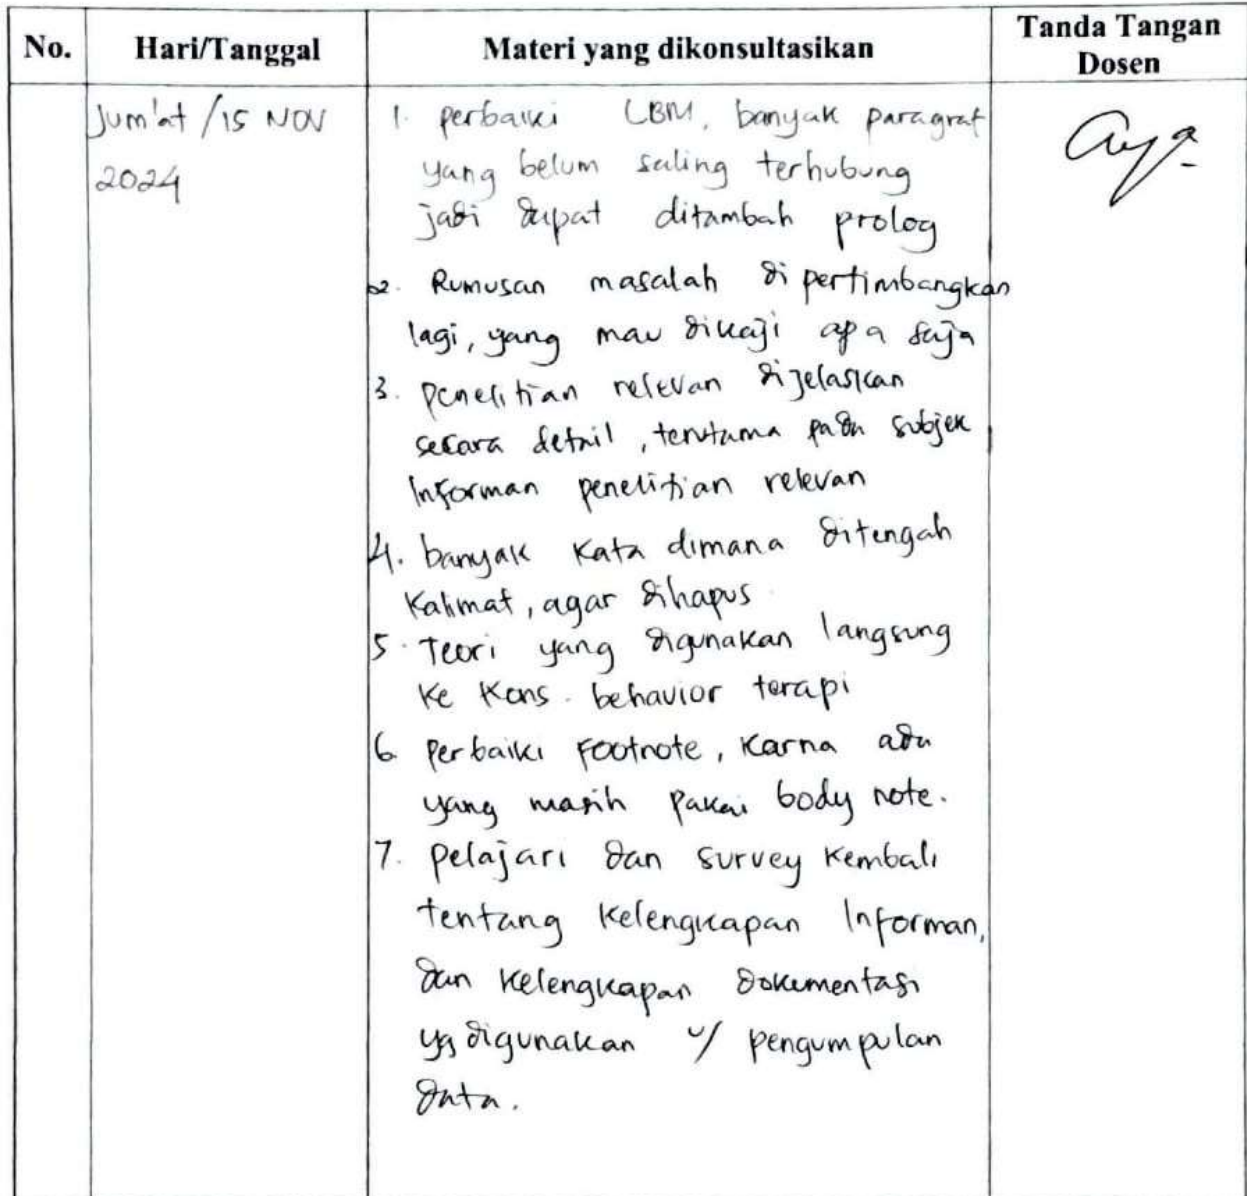 No. Hari/Tanggal Materi yang dikonsultasikan Tanda Tangan Dosen
Jum'at / 15 NOV
2024
1. perbaiki LBM, banyak paragraf
yang belum saling terhubung
jadi dapat ditambah prolog
2. Rumusan masalah dipertimbangkan
lagi, yang mau dikaji apa saja
3. penelitian relevan dijelaskan
secara detail, terutama pada subjek
Informan penelitian relevan
4. banyak kata dimana ditengah
kalimat, agar dihapus
5. Teori yang digunakan langsung
ke Kons. behavior terapi
6 perbaiki Footnote, karna ada
yang masih pakai body note.
7. pelajari dan survey kembali
tentang kelengkapan Informan,
dan kelengkapan dokumentasi
yg digunakan u/ pengumpulan
data.